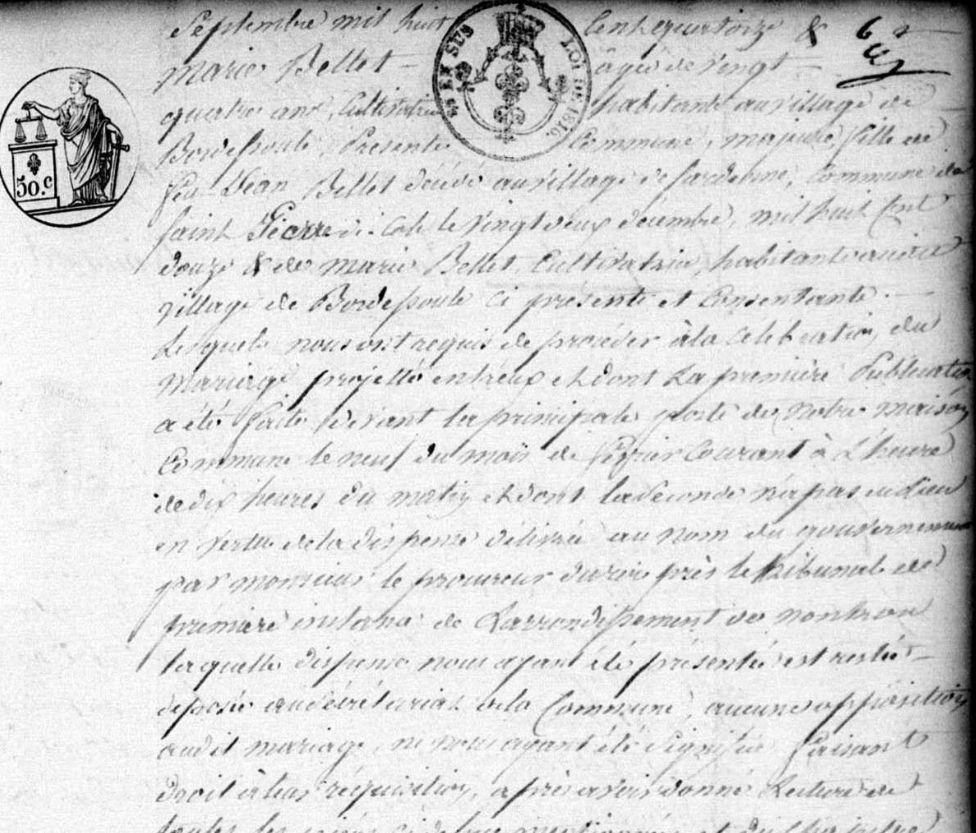 Septembre mil huit Cent quatorze &
Marie Bellet âgée de Vingt
quatre ans, Cultivatrice habitante au village de
Bordessoule, Présente Commune, majeure, fille de
feu Jean Bellet décédé au village de Commune de
Saint Pierre de Cole le Vingt deux décembre, mil huit Cent
douze & de Marie Bellet, Cultivatrice, habitante audit
village de Bordessoule ci présente et Consentante.
Lesquels nous ont requis de procéder à la Célébration du
Mariage projetté entr'eux et dont La première Publication
a été faitte devant la principale porte de Notre maison
Commune le neuf du mois de Février Courant à L'heure
de dix heures du matin et dont la Seconde n'a pas eu Lieu
en Vertu de la dispense délivrée au nom du gouvernement
par monsieur le procureur du roi près le tribunal de
première instance de L'arrondissement de Nontron
laquelle dispense nous ayant été présentée est restée
déposée au Sécrétariat de la Commune, aucune opposition
audit mariage ne nous ayant été Signifiée faisant
droit à leur réquisition, après avoir donné Lecture de
toutes les pièces ci dessus mentionnées et du Chapitre
EN SUS
LOI DE 1816
50.c